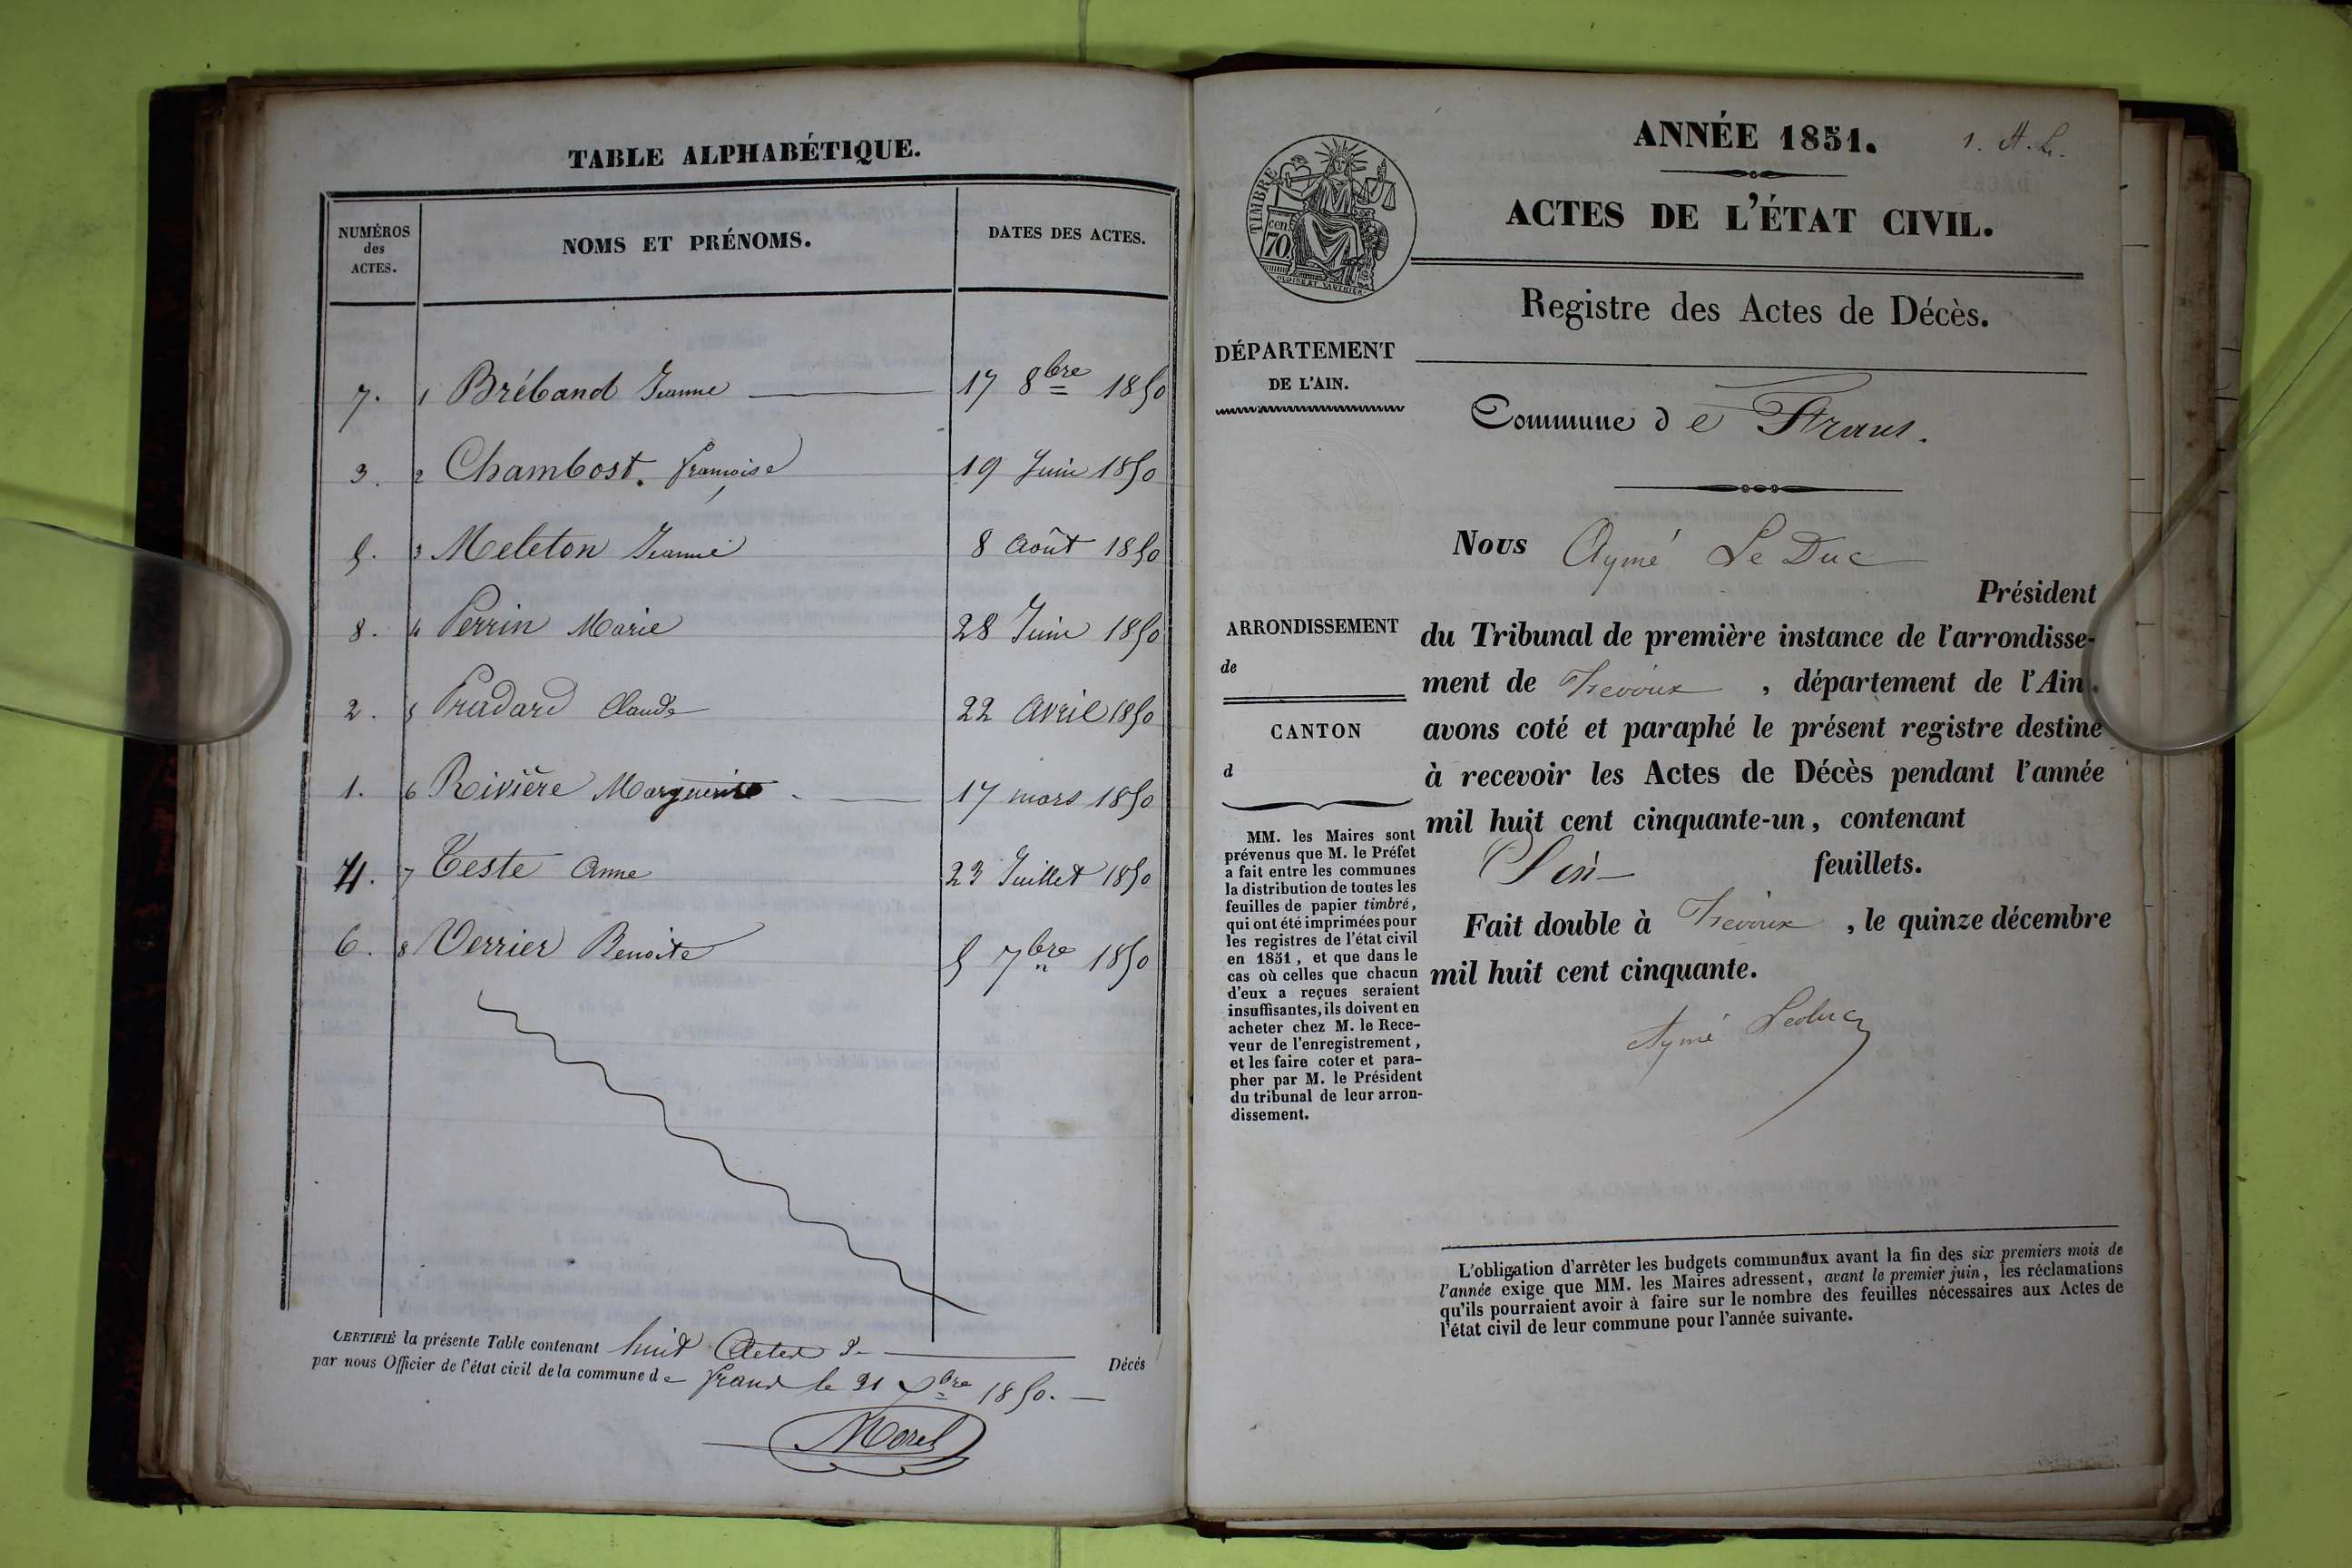 TABLE ALPHABÉTIQUE.
NUMÉROS
des
ACTES.
NOMS ET PRÉNOMS.
DATES DES ACTES.
7. 1 Réband Jeanne 17 8bre 1850
3. 2 Chambost. françoise 19 Juin 1850
5. 3 Meleton Jeanne 8 Août 1850
8. 4 Perrin Marie 28 Juin 1850
2. 5 Pradard Claude 22 Avril 1850
1. 6 Rivière Marguerite 17 mars 1850
4. 7 Teste Anne 23 Juillet 1850
6. 8 Verrier Benoite 5 7bre 1850
CERTIFIÉ la présente Table contenant huit Actes de Décés
par nous Officier de l'état cicil de la commune de frans le 31 Xbre 1850.
Morel
ANNÉE 1851.
1. A. L.
ACTES DE L'ÉTAT CIVIL.
TIMBRE
cen.
70
Registre des Actes de Décès.
DÉPARTEMENT
DE L'AIN.
Commune de Frans.
Nous Aymé Le Duc
Président
ARRONDISSEMENT
de
CANTON
d
du Tribunal de première instance de l'arrondisse-
ment de Trevoux, département de l'Ain.
avons coté et paraphé le présent registre destiné
à recevoir les Actes de Décès pendant l'année
mil huit cent cinquante-un, contenant
feuillets.
Fait double à Trevoux, le quinze décembre
mil huit cent cinquante.
Aymé Leduc
MM. les Maires sont
prévenus que M. le Préfet
a fait entre les communes
la distribution de toutes les
feuilles de papier timbré,
qui ont été imprimées pour
les registres de l'état civil
en 1851, et que dans le
cas où celles que chacun
d'eux a reçues seraient
insuffisantes, ils doivent en
acheter chez M. le Rece-
veur de l'enregistrement,
et les faire coter et para-
pher par M. le Président
du tribunal de leur arron-
dissement.
L'obligation d'arrêter les budgets communaux avant la fin des six premiers mois de
l'année exige que MM. les Maires adressent, avant le premier juin, les réclamations
qu'ils pourraient avoir à faire sur le nombre des feuilles nécessaires aux Actes de
l'état civil de leur commune pour l'année suivante.